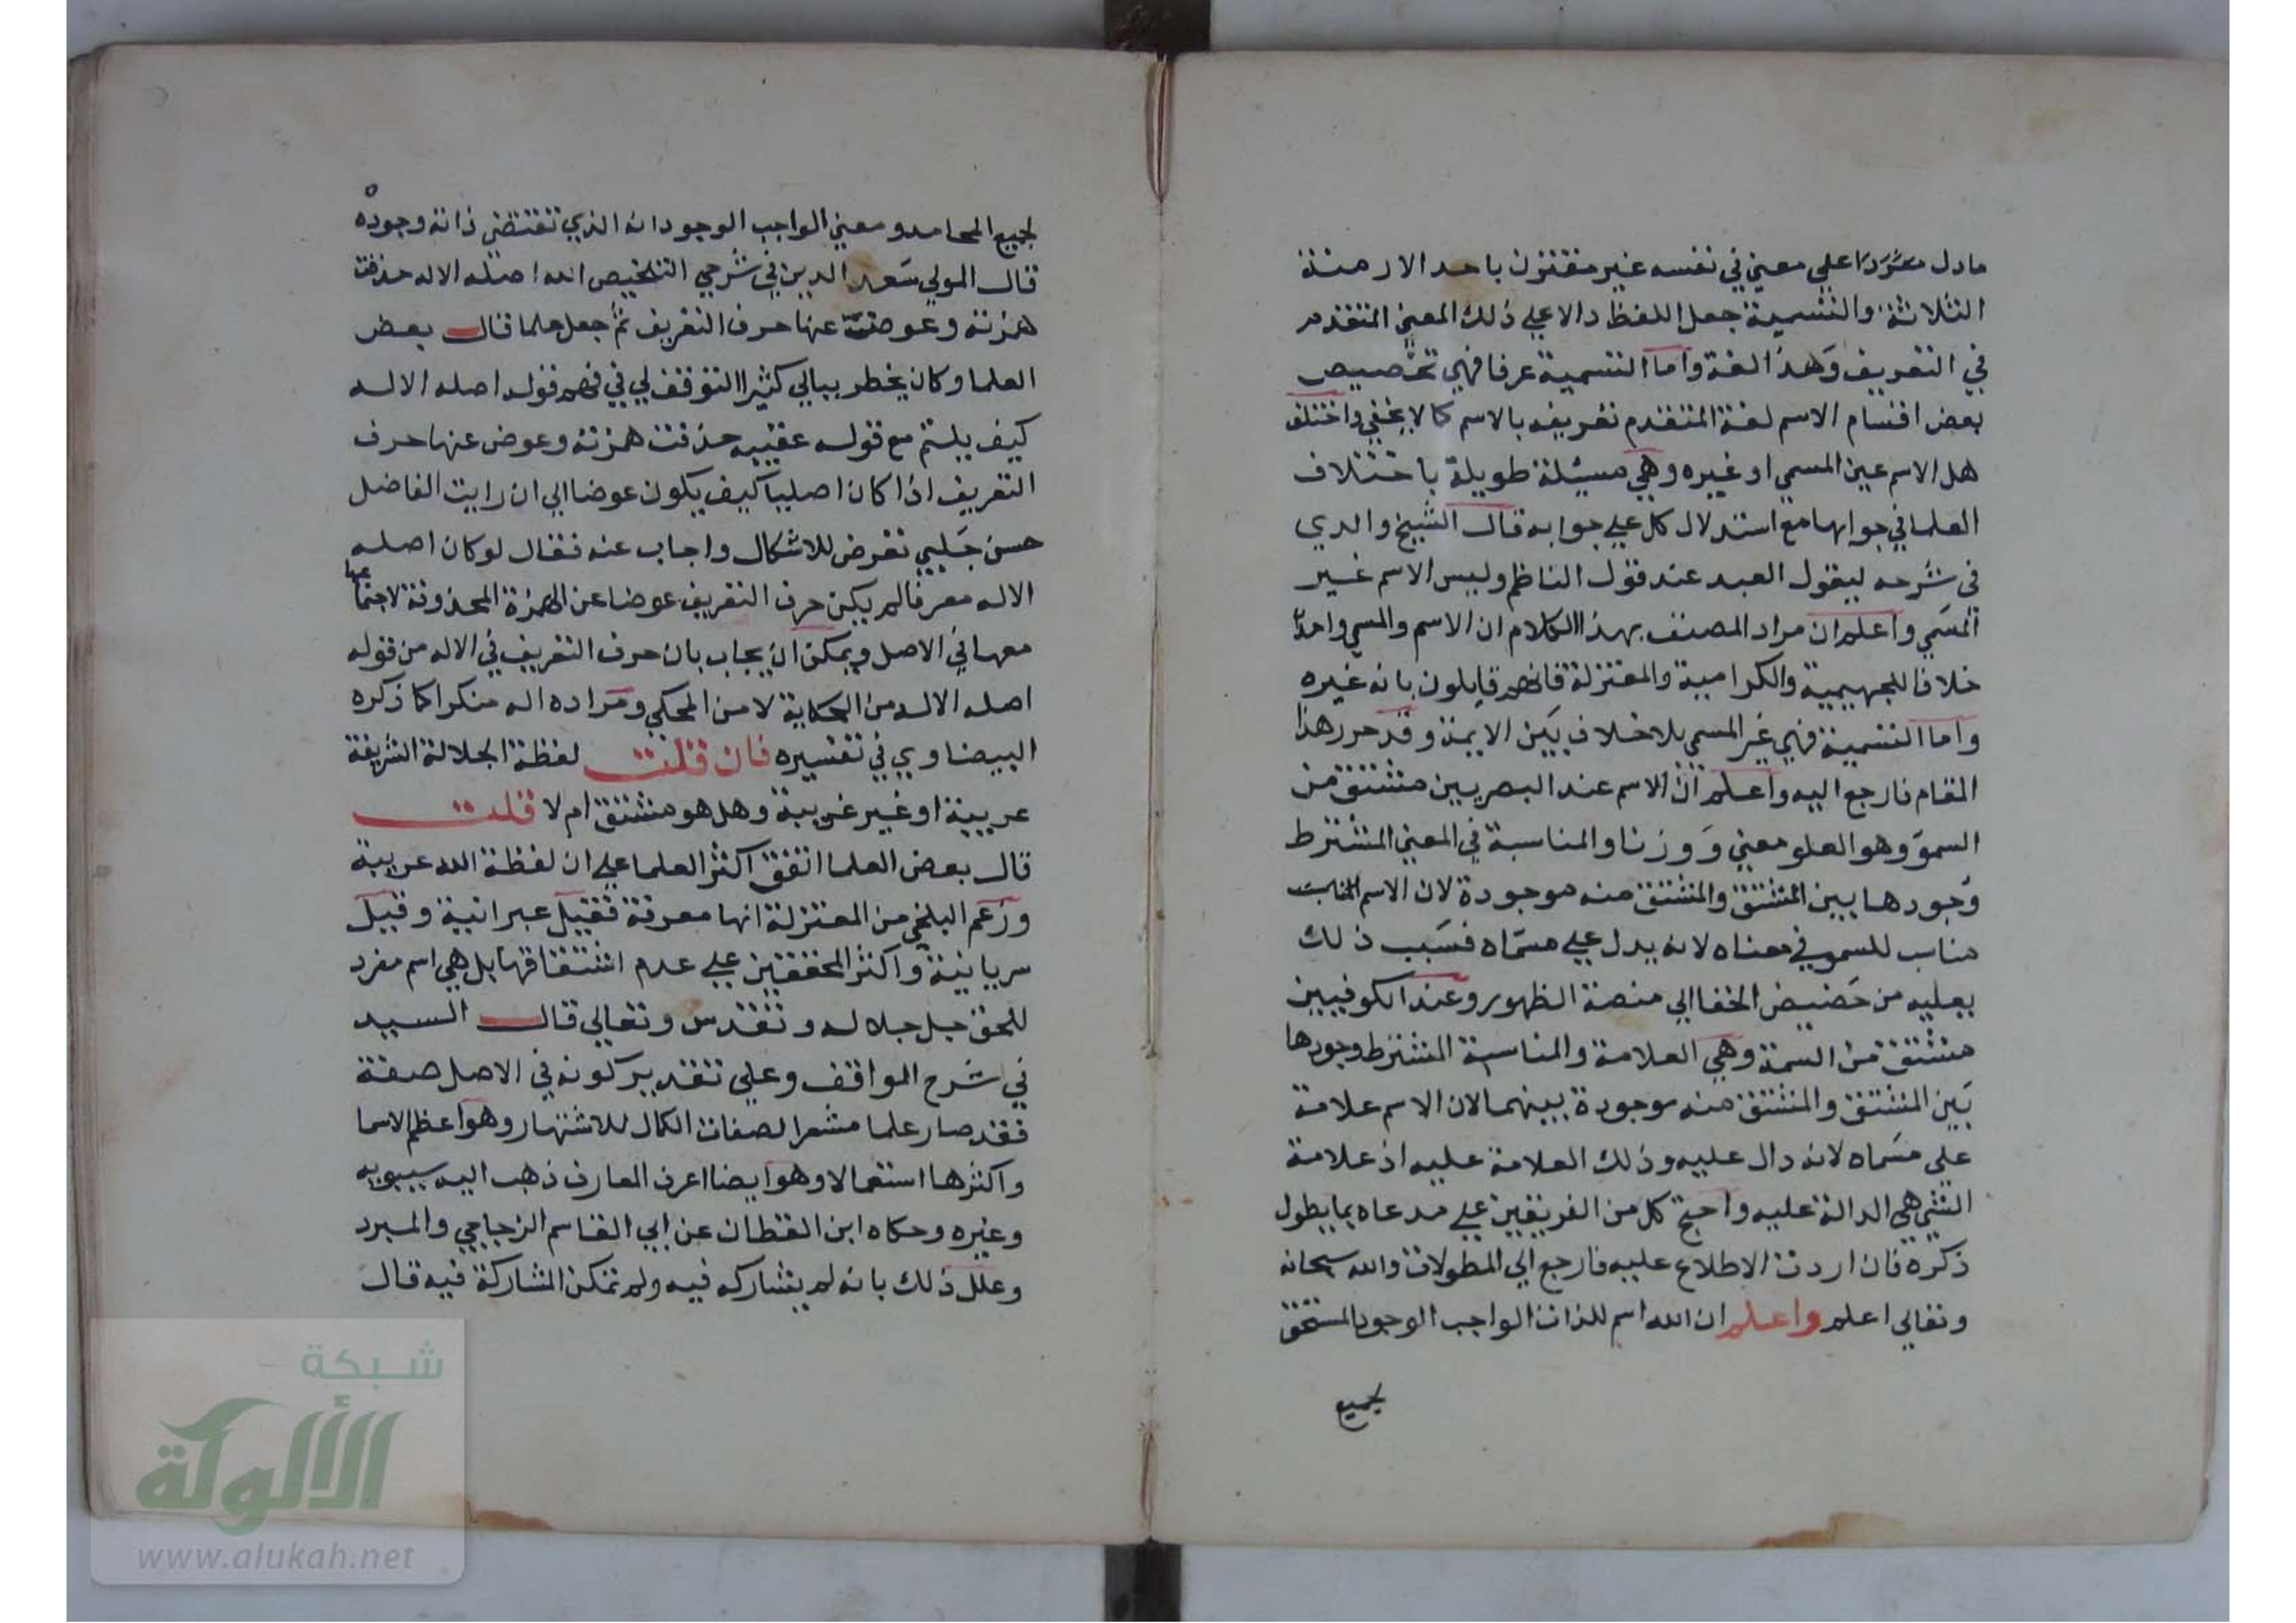 مادل مفردا علي معني في نفسه غير مقترن باحد الازمنة
الثلاثة والتسمية جعل اللفظ دالا علي ذلك المعني المتقدم
في التعريف وهذا لغة واما التسمية عرفا فهي تخصيص
بعض اقسام الاسم لغة المتقدم تعريفه بالاسم كما لا يخفي واختلف
هل الاسم عين المسمي او غيره وهي مسئلة طويلة باختلاف
العلما في جوابها مع استدلال كل علي جوابه قال الشيخ والدي
في شرحه ليقول العبد عند قول الناظم وليس الاسم غير
المسمي واعلم ان مراد المصنف بهذا الكلام ان الاسم والمسمي واحد
خلافا للجهيمية والكرامية والمعتزلة فانهم قايلون بانه غيره
واما التسمية فهي غير المسمي بلا خلاف بين الايمة وقد حرر هذا
المقام فارجع اليه واعلم ان الاسم عند البصريين مشتق من
السمو وهو العلو معني ووزنا والمناسبة في المعني المشترط
وجودها بين المشتق والمشتق منه موجودة لان الاسم
مناسب للسمو في معناه لانه يدل علي مسماه فسبب ذلك
يعليه من حضيض الخفا الي منصة الظهور وعند الكوفيين
مشتق من السمة وهي العلامة والمناسبة المشترط وجودها
بين المشتق والمشتق منه موجودة بينهما لان الاسم علامة
علي مسماه لانه دال عليه وذلك العلامة عليه اذ علامة
الشي هي الدالة عليه واحتج كل من الفريقين علي مدعاه بما يطول
ذكره فان اردت الاطلاع عليه فارجع الي المطولات والله سبحانه
وتعالي اعلم واعلم ان الله اسم للذات الواجب الوجود المستحق
لجميع
لجميع المحامد ومعني الواجب الوجود انه الذي تقتضي ذاته وجوده
قال المولي سعد الدين في شرحي التلخيص الله اصله الاله حذفت
همزته وعوضت عنها حرف التعريف ثم جعل علما قال بعض
العلما وكان يخطر ببالي كثيرا التوقف لي في فهم قوله اصله الاله
كيف يلتئم مع قوله عقيبه حذفت همزته وعوض عنها حرف
التعريف اذا كان اصليا كيف يكون عوضا الي ان رايت الفاضل
حسن جلبي تعرض للاشكال واجاب عنه فقال لو كان اصله
الاله معرفا لم يكن حرف التعريف عوضا عن الهمزة المحذوفة لاجتماعها
معها في الاصل ويمكن ان يجاب بان حرف التعريف في الاله من قوله
اصله الاله من الحكاية لا من المحكي ومراده اله منكرا كما ذكره
البيضاوي في تفسيره فان قلت لفظة الجلالة الشريفة
عربية او غير عربية وهل هو مشتق ام لا قلت
قال بعض العلما اتفق اكثر العلما علي ان لفظة الله عربية
وزعم البلخي من المعتزلة انها معربة فقيل عبرانية وقيل
سريانية واكثر المحققين علي عدم اشتقاقها بل هي اسم مفرد
للحق جل جلاله وتقدس وتعالي قال السيد
في شرح المواقف وعلي تقدير كونه في الاصل صفة
فقد صار علما مشعرا لصفات الكمال للاشتهار وهو اعظم الاسما
واكثرها استعمالا وهو ايضا اعرف المعارف ذهب اليه سيبويه
وغيره وحكاه ابن القطان عن ابي القاسم الزجاجي والمبرد
وعلل ذلك بانه لم يشاركه فيه ولم تمكن المشاركة فيه قال
شبكة
الألوكة
www.alukah.net